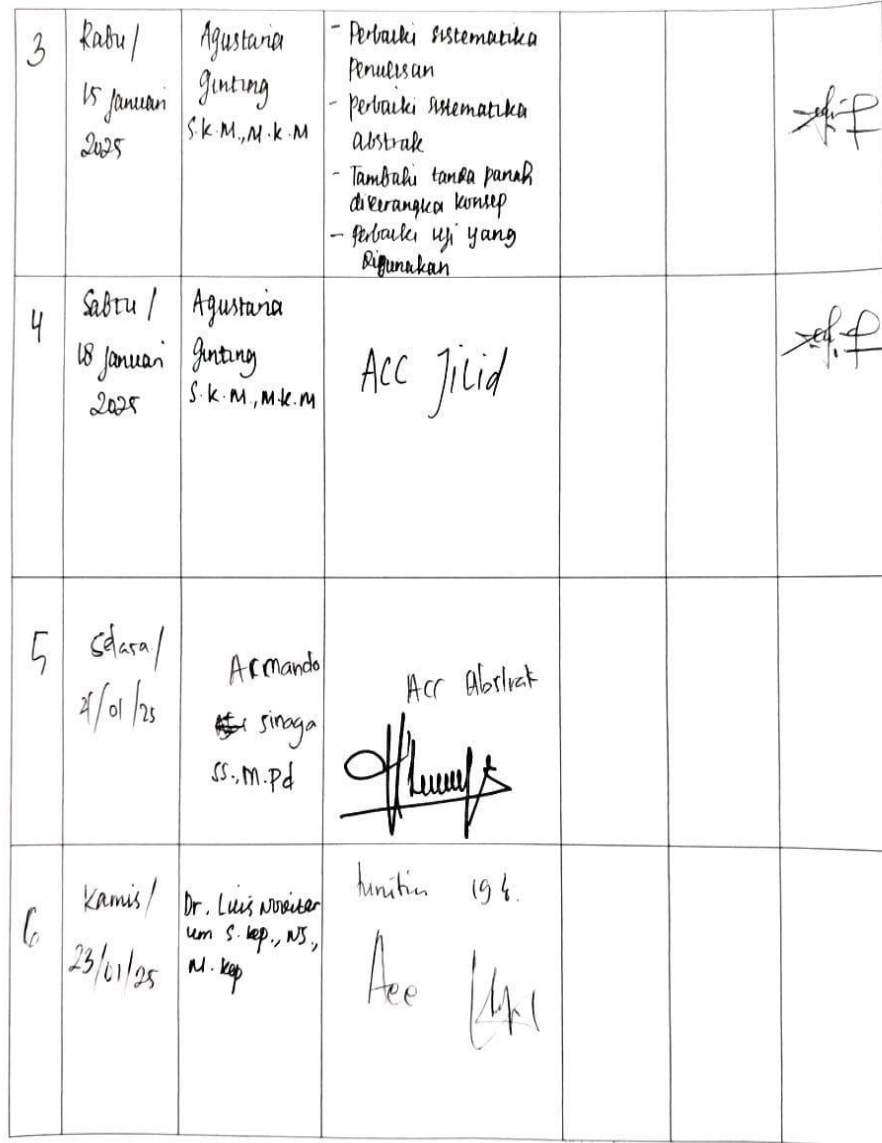 3
Rabu/
15 Januari
2025
Agustaria
Ginting
S.K.M., M.K.M
- Perbaiki sistematika
Penulisan
- Perbaiki sistematika
abstrak
- Tambahi tanda panah
dikerangka konsep
- Perbaiki uji yang
Digunakan
4
Sabtu /
18 Januari
2025
Agustaria
Ginting
S.K.M., M.K.M
ACC Jilid
5
Selasa/
21/01/25
Armando
Sinaga
SS., M.Pd
Acc Abstrak
6
Kamis/
23/01/25
Dr. Luis
um S.kep., NS.,
M.kep
19
Acc